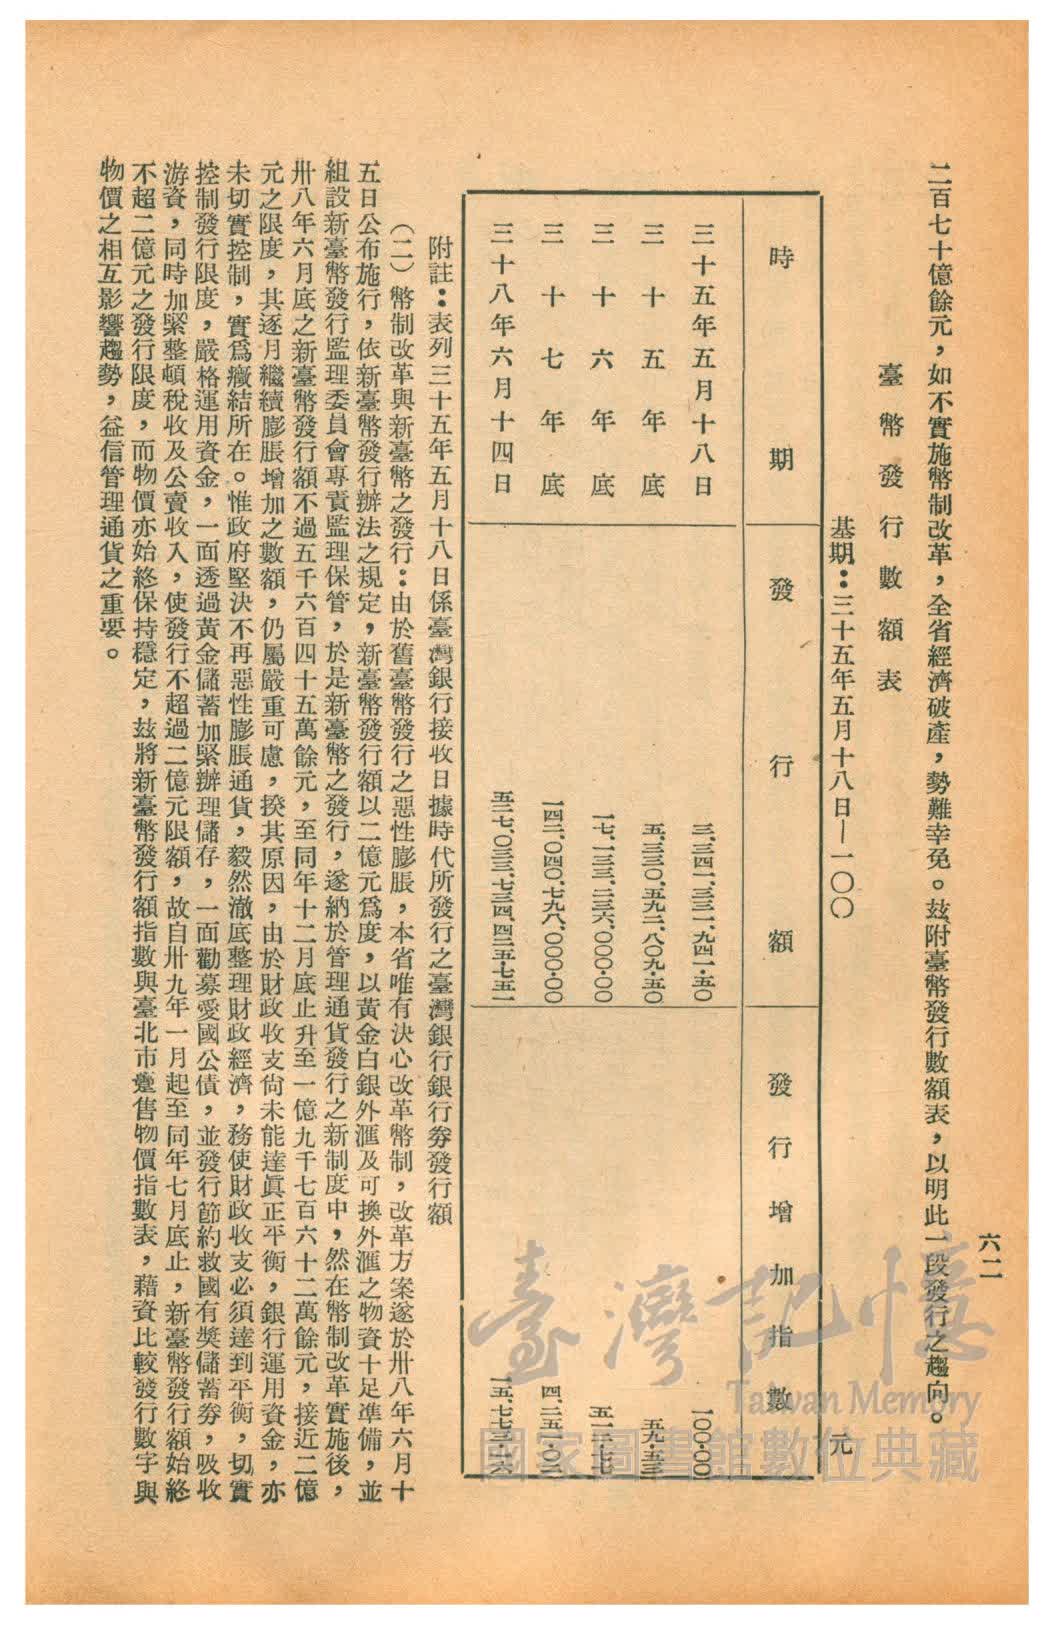 六二
二百七十億餘元，如不實施幣制改革，全省經濟破產，勢難幸免。茲附臺幣發行數額表，以明此一段發行之趨向。
臺幣發行數額表
基期：三十五年五月十八日—一〇〇
元
時期 發行額 發行增加指數
三十五年五月十八日 三、三四一、三三一、九四一・五〇 一〇〇・〇〇
三十五年底 五、三三〇、五九二、八〇九・五〇
三十六年底 一七、一三三、二三六、〇〇〇・〇〇
三十七年底 一四二、〇四〇、七九八、〇〇〇・〇〇 四、二五一・〇二
三十八年六月十四日 五二七、〇三三、七三四、四二五・七五
附註：表列三十五年五月十八日係臺灣銀行接收日據時代所發行之臺灣銀行銀行券發行額
（二）幣制改革與新臺幣之發行：由於舊臺幣發行之惡性膨脹，本省唯有決心改革幣制，改革方案遂於卅八年六月十
五日公布施行，依新臺幣發行辦法之規定，新臺幣發行額以二億元爲度，以黃金白銀外滙及可換外滙之物資十足準備，並
組設新臺幣發行監理委員會專責監理保管，於是新臺幣之發行，遂納於管理通貨發行之新制度中，然在幣制改革實施後，
卅八年六月底之新臺幣發行額不過五千六百四十五萬餘元，至同年十二月底止升至一億九千七百六十二萬餘元，接近二億
元之限度，其逐月繼續膨脹增加之數額，仍屬嚴重可慮，揆其原因，由於財政收支尙未能達眞正平衡，銀行運用資金，亦
未切實控制，實爲癥結所在。惟政府堅決不再惡性膨脹通貨，毅然澈底整理財政經濟，務使財政收支必須達到平衡，切實
控制發行限度，嚴格運用資金，一面透過黃金儲蓄加緊辦理儲存，一面勸募愛國公債，並發行節約救國有奬儲蓄券，吸收
游資，同時加緊整頓稅收及公賣收入，使發行不超過二億元限額，故自卅九年一月起至同年七月底止，新臺幣發行額始終
不超二億元之發行限度，而物價亦始終保持穩定，茲將新臺幣發行額指數與臺北市躉售物價指數表，藉資比較發行數字與
物價之相互影響趨勢，益信管理通貨之重要。
臺灣記憶
Taiwan Memory
國家圖書館數位典藏